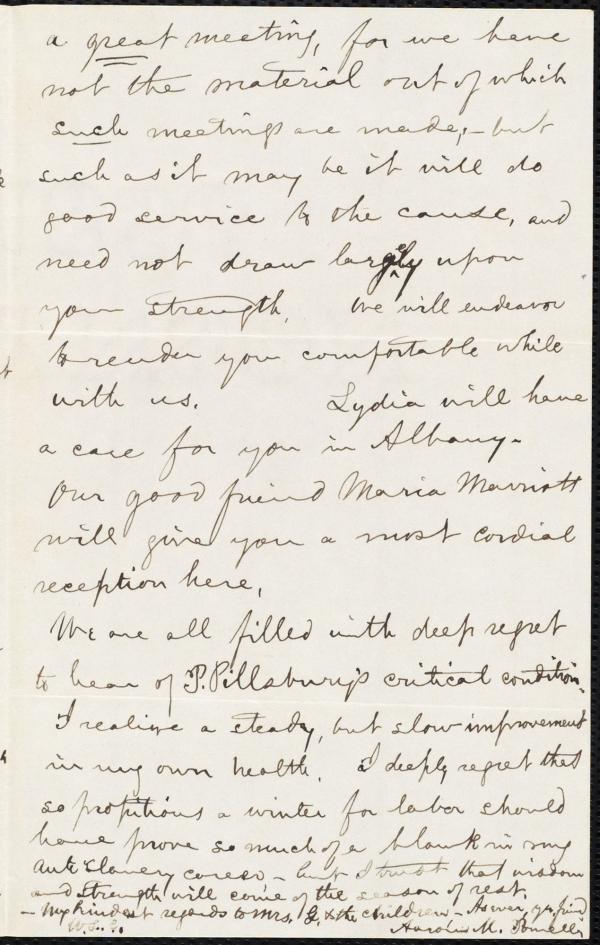 a great meeting, for we have
not the material out of which
such meetings are made,- but
such as it may be it will do
good service to the cause, and
need not draw largely upon
your strength. We will endeavor
to render you comfortable while
with us. Lydia will have
a care for you in Albany.
Our good friend Maria Marriott
will give you a most cordial
reception here,
We are all filled with deep regret
to hear of P. Pillsbury's critical condition.
I realize a steady, but slow improvement
in my own health. I deeply regret that
so propitious a winter for labor should
have prove so much of a blank in my
Anti Slavery career - but I trust that wisdom
and strength will come of the season of rest.
- My kindest regards to Mrs. G. & the children - As ever, yr. friend
W. L. G. Aaron M. Powell